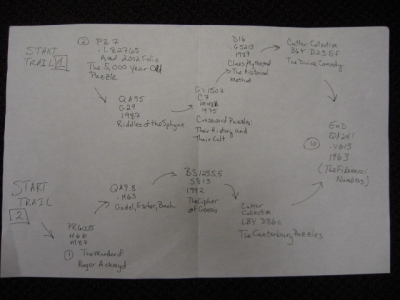 START
TRAIL
1
2
PZ 7
.L82765
Aged 2012 Folio
The 5,000 Year Old
Puzzle
QA95
G29
1987
Riddles of the Sphynx
GV1507
C7
1975
Crossword Puzzles:
Their History and
Their Cult
D16
.G5213
1989
Clues, Myths, and
the Historical
Method
Cutter Collection
The Divine Comedy
START
TRAIL
2
1
PR6005
H66
M87
The Murder of
Roger Ackroyd
QA9.8
.H63
Godel, Escher, Bach
BS1255.5
1992
The Cipher
of Genesis
Cutter
Collection
The Canterbury Puzzles
10
END
QA241
.V613
1963
(The Fibonacci
Numbers)